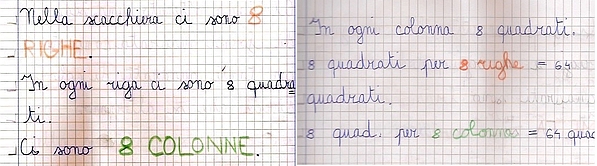 Nella scacchiera ci sono 8
RIGHE.
In ogni riga ci sono 8 quadra
ti.
Ci sono 8 COLONNE.
In ogni colonna 8 quadrati.
8 quadrati per 8 righe = 64
quadrati.
8 quad. per 8 colonne = 64 quad